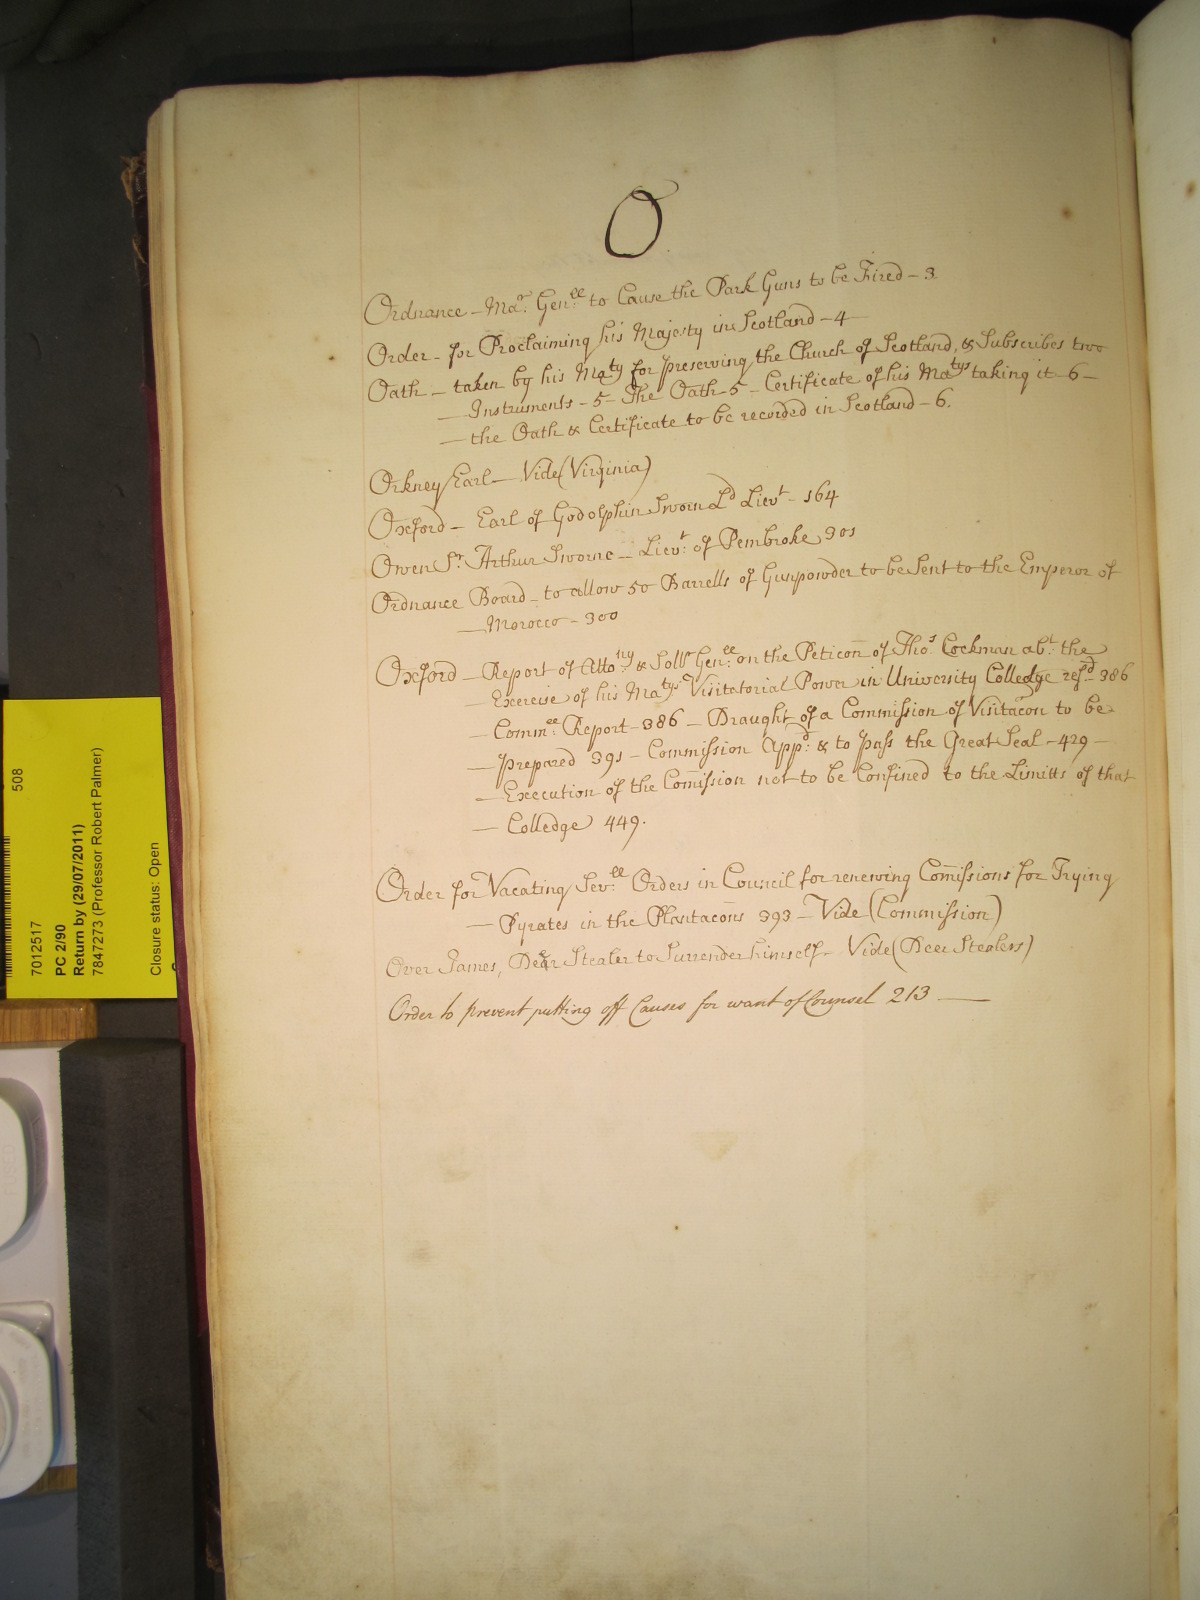 O
Ordnance - Mar. Genll. to Cause the Park Guns to be Fired - 3
Order - for Proclaiming his Majesty in Scotland - 4
Oath - taken by his Maty for preserving the Church of Scotland, & Subscribes two
- Instruments - 5 - The Oath - 5 - Certificate of his Matys taking it - 6 -
- the Oath & Certificate to be recorded in Scotland - 6.
Orkney Earl - Vide (Virginia)
Oxford - Earl of Godolphin Sworn Ld Lievt - 164
Owen Sr. Arthur Sworne - Lievt. of Pembroke 301
Ordnance Board - to allow 50 Barrells of Gunpowder to be Sent to the Emperor of
- Morocco - 300
Oxford - Report of Attorny & Sollr Genll. on the Peticōn of Thos. Cockman abt. the
- Exercise of his Matys Visitatorial Power in University Colledge refd. 386
- Commee. Report - 386 - Draught of a Commission of Visitacōn to be
- prepared 391 - Commission Appd: & to pass the Great Seal - 429 -
- Execution of the Com̄ission not to be Confined to the Limitts of that
- Colledge 449.
Order for Vacating Sevll. Orders in Council for renewing Com̄issions for Trying
- Pyrates in the Plantacōns 393 - Vide (Commission)
Over James, Deer Stealer to Surrender himself - Vide (Deer Stealers)
Order to prevent putting off Causes for want of Counsel 213 -
508
7012517
PC 2/90
Return by (29/07/2011)
7847273 (Professor Robert Palmer)
Closure status: Open